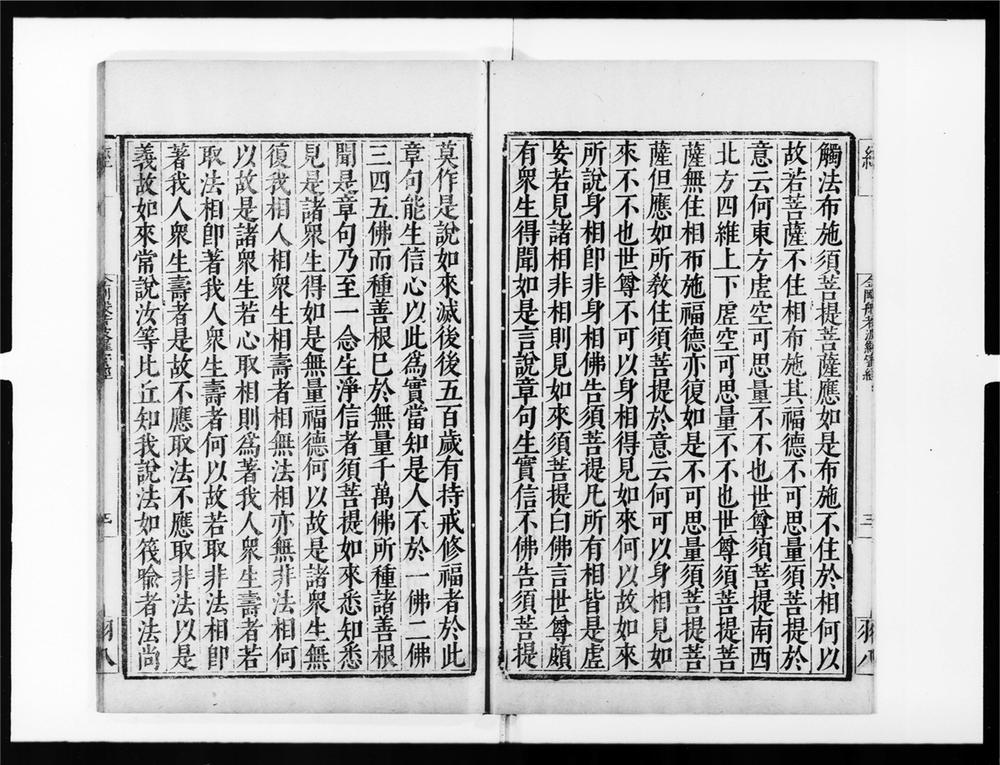 經
金剛般若波羅蜜經
三
羽八
觸法布施須菩提菩薩應如是布施不住於相何以
故若菩薩不住相布施其福德不可思量須菩提於
意云何東方虛空可思量不不也世尊須菩提南西
北方四維上下虛空可思量不不也世尊須菩提菩
薩無住相布施福德亦復如是不可思量須菩提菩
薩但應如所敎住須菩提於意云何可以身相見如
來不不也世尊不可以身相得見如來何以故如來
所說身相卽非身相佛告須菩提凡所有相皆是虛
妄若見諸相非相則見如來須菩提白佛言世尊頗
有衆生得聞如是言說章句生實信不佛告須菩提
莫作是說如來滅後後五百歲有持戒修福者於此
章句能生信心以此爲實當知是人不於一佛二佛
三四五佛而種善根已於無量千萬佛所種諸善根
聞是章句乃至一念生淨信者須菩提如來悉知悉
見是諸衆生得如是無量福德何以故是諸衆生無
復我相人相衆生相壽者相無法相亦無非法相何
以故是諸衆生若心取相則爲著我人衆生壽者若
取法相卽著我人衆生壽者何以故若取非法相卽
著我人衆生壽者是故不應取法不應取非法以是
義故如來常說汝等比丘知我說法如筏喩者法尚